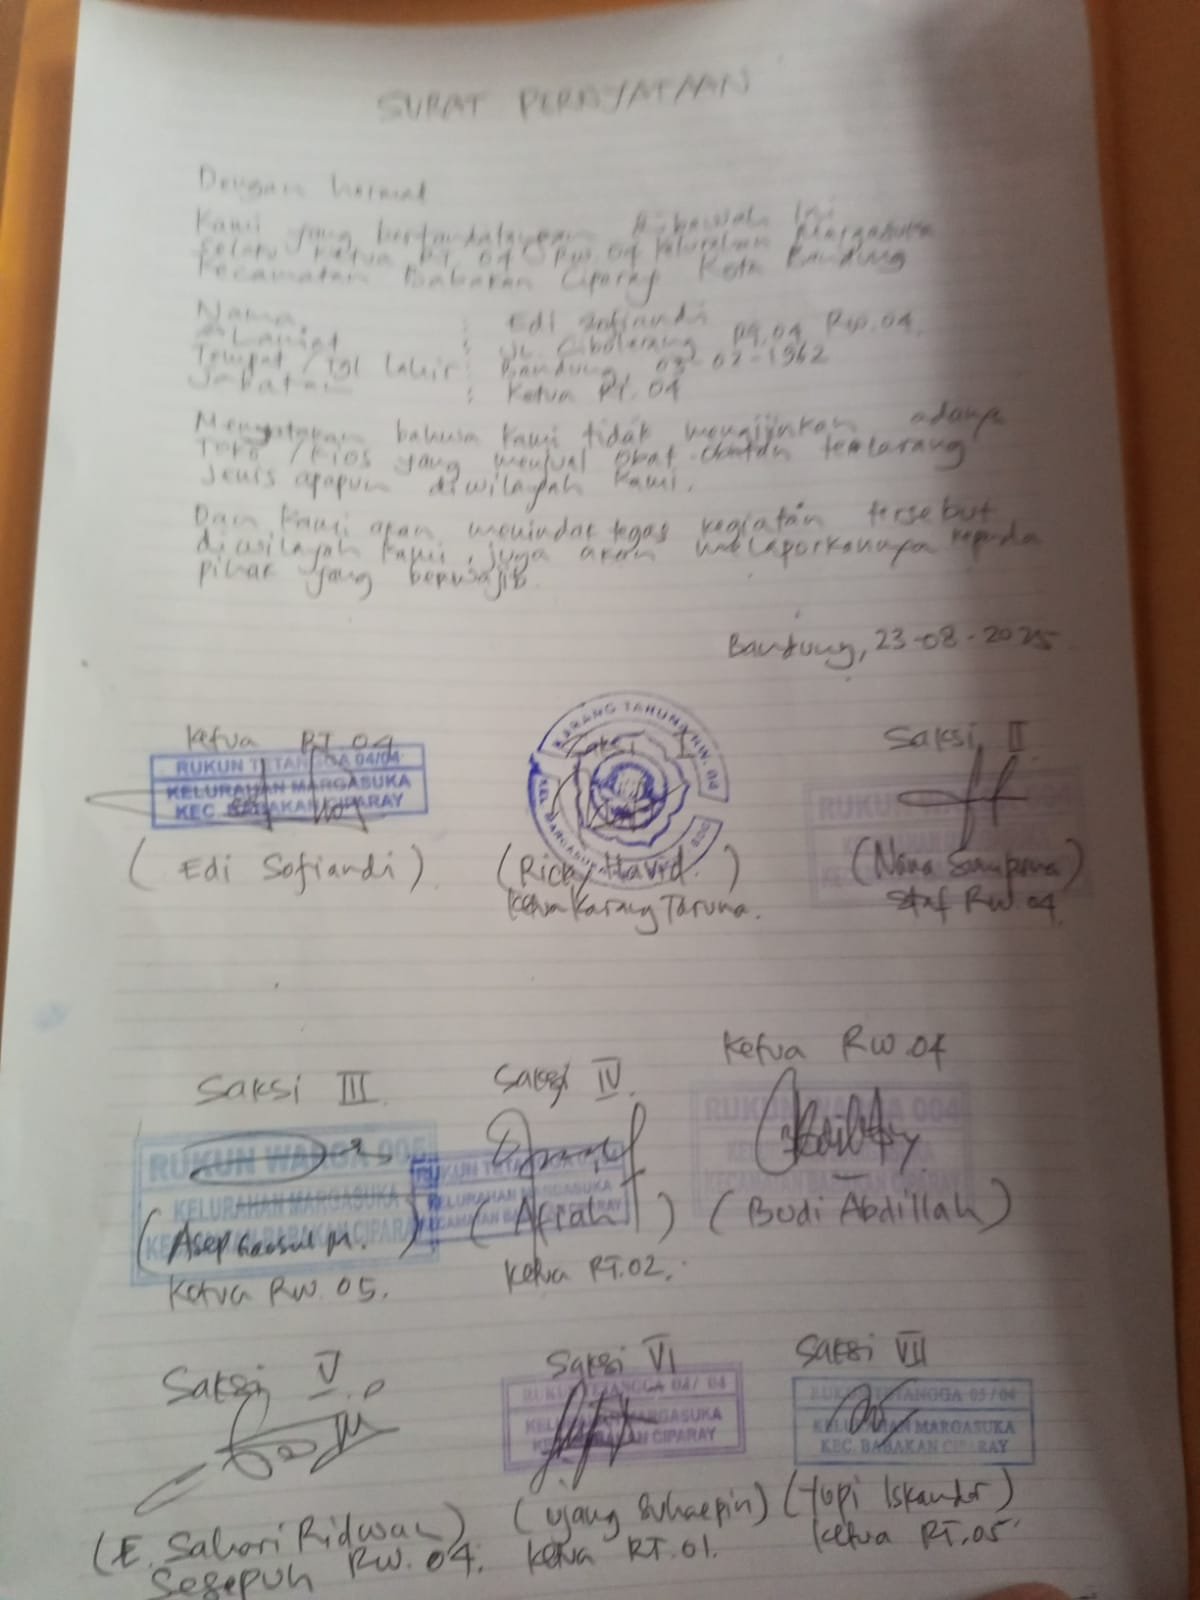 SURAT PERNYATAAN
Dengan hormat
Kami yang bertandatangan dibawah Ini
Selaku Ketua RT. 04 Rw. 04 Kelurahan Margasuka
Kecamatan Babakan Ciparay Kota Bandung
Nama : Edi Sofiandi
Alamat : JL. Cibolerang RT.04 Rw.04.
Tempat/Tgl Lahir : Bandung, 03-02-1962
Jabatan : Ketua RT. 04
Menyatakan bahwa Kami tidak mengijinkan adanya
Toko/Kios yang menjual obat-obatan terlarang
Jenis apapun diwilayah Kami.
Dan Kami akan menindak tegas kegiatan tersebut
diwilayah Kami, juga akan melaporkannya kepada
pihak yang berwajib.
Bandung, 23-08-2025
Ketua RT 04
RUKUN TETANGGA 04/04
KELURAHAN MARGASUKA
KEC. BABAKAN CIPARAY
(Edi Sofiandi)
KARANG TARUNA RW. 04
Saksi I
(Ricky Havid)
Ketua Karang Taruna.
Saksi II
RUKUN
(Nana Sampena)
Staf RW.04
Saksi III
RUKUN WARGA 005
KELURAHAN MARGASUKA
KEC. BABAKAN CIPARAY
(Asep M.)
Ketua RW. 05.
Saksi IV
RUKUN TETANGGA
KELURAHAN MARGASUKA
KECAMATAN BABAKAN CIPARAY
(Afrah)
Ketua RT.02.
Ketua RW.04
RUKUN WARGA 004
KECAMATAN BABAKAN CIPARAY
(Budi Abdillah)
Saksi V
(E. Sahari Ridwan)
Sesepuh RW. 04.
Saksi VI
RUKUN TETANGGA 04
KELURAHAN MARGASUKA
KEC. BABAKAN CIPARAY
(Ujang Suhaepin)
Ketua RT.01.
Saksi VII
RUKUN TETANGGA 05/04
KELURAHAN MARGASUKA
KEC. BABAKAN CIPARAY
(Yopi Iskandar)
Ketua RT.05